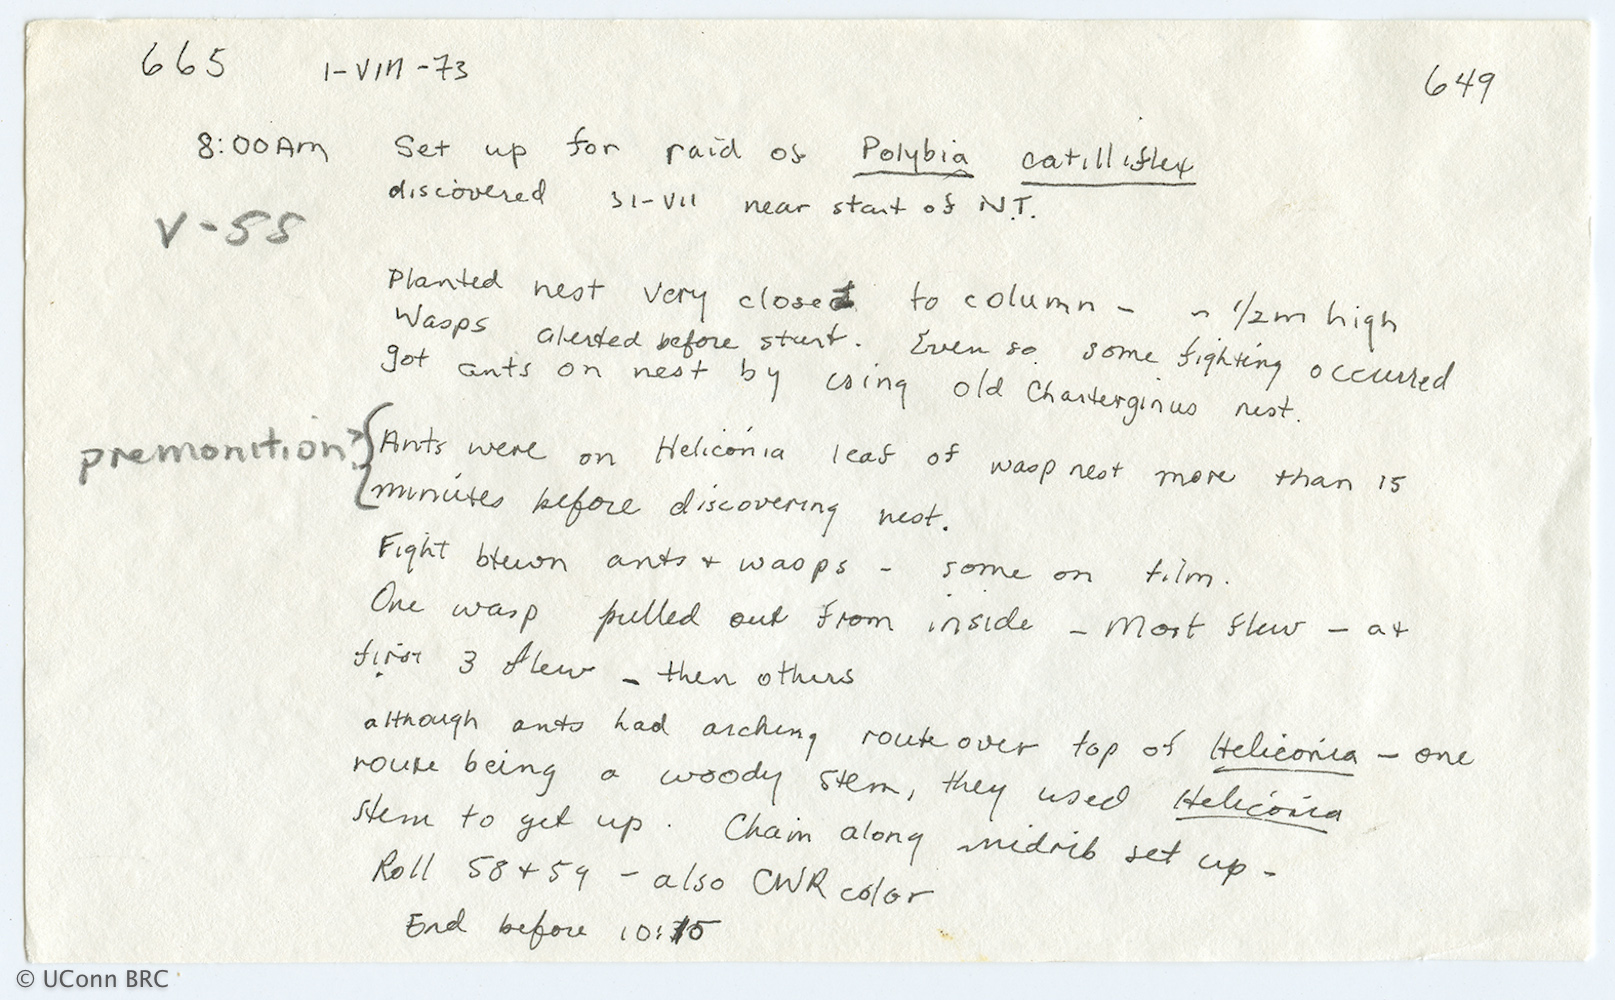 665 1-VIII-73 649
8:00Am Set up for raid of Polybia catilliflex
discovered 31-VII near start of N.T.
V-55
Planted nest very close to column - ~ 1/2m high
Wasps alerted before start. Even so some fighting occurred
got ants on nest by using old Charterginus nest.
premonition? Ants were on Heliconia leaf of wasp nest more than 15
minutes before discovering nest.
Fight btewn ants + wasps - some on film.
One wasp pulled out from inside - Most flew - at
first 3 flew - then others
although ants had arching route over top of Heliconia - one
route being a woody stem, they used Heliconia
stem to get up. Chain along midrib set up -
Roll 58 + 59 - also CWR color
End before 10:15
© UConn BRC